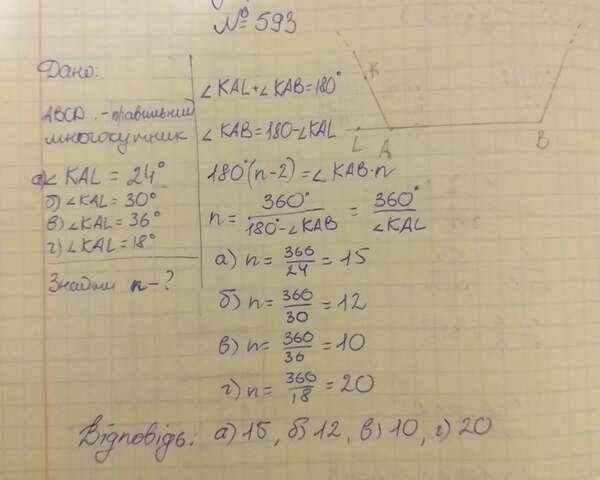 № 593
Дано:
ABCD...-правильний
многокутник
а) ∠KAL = 24°
б) ∠KAL = 30°
в) ∠KAL = 36°
г) ∠KAL = 18°
Знайти n-?
∠KAL+∠KAB=180°
∠KAB=180-∠KAL
180°(n-2)=∠KAB·n
n = 360° / 180°-∠KAB = 360° / ∠KAL
а) n = 360/24 = 15
б) n = 360/30 = 12
в) n = 360/36 = 10
г) n = 360/18 = 20
Відповідь: а) 15, б) 12, в) 10, г) 20
K
L A B